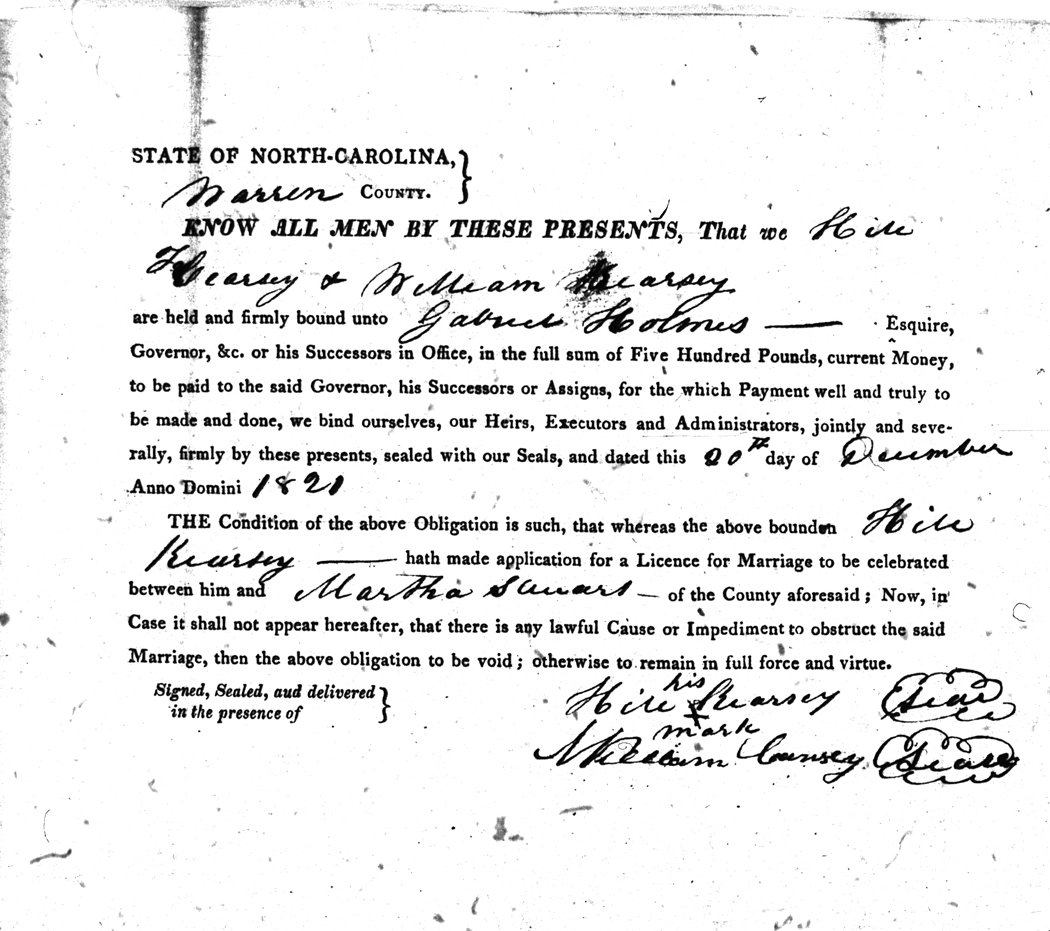 STATE OF NORTH-CAROLINA,
Warren COUNTY.
KNOW ALL MEN BY THESE PRESENTS, That we Hill
Kearsey & William Kearsey
are held and firmly bound unto Gabriel Holmes — Esquire,
Governor, &c. or his Successors in Office, in the full sum of Five Hundred Pounds, current Money,
to be paid to the said Governor, his Successors or Assigns, for the which Payment well and truly to
be made and done, we bind ourselves, our Heirs, Executors and Administrators, jointly and seve-
rally, firmly by these presents, sealed with our Seals, and dated this 20th day of December
Anno Domini 1821
THE Condition of the above Obligation is such, that whereas the above bounden Hill
Kearsey — hath made application for a Licence for Marriage to be celebrated
between him and Martha Stuart — of the County aforesaid; Now, in
Case it shall not appear hereafter, that there is any lawful Cause or Impediment to obstruct the said
Marriage, then the above obligation to be void; otherwise to remain in full force and virtue.
Signed, Sealed, aud delivered
in the presence of
his
Hill X Kearsey (Seal)
mark
William Cansey (Seal)